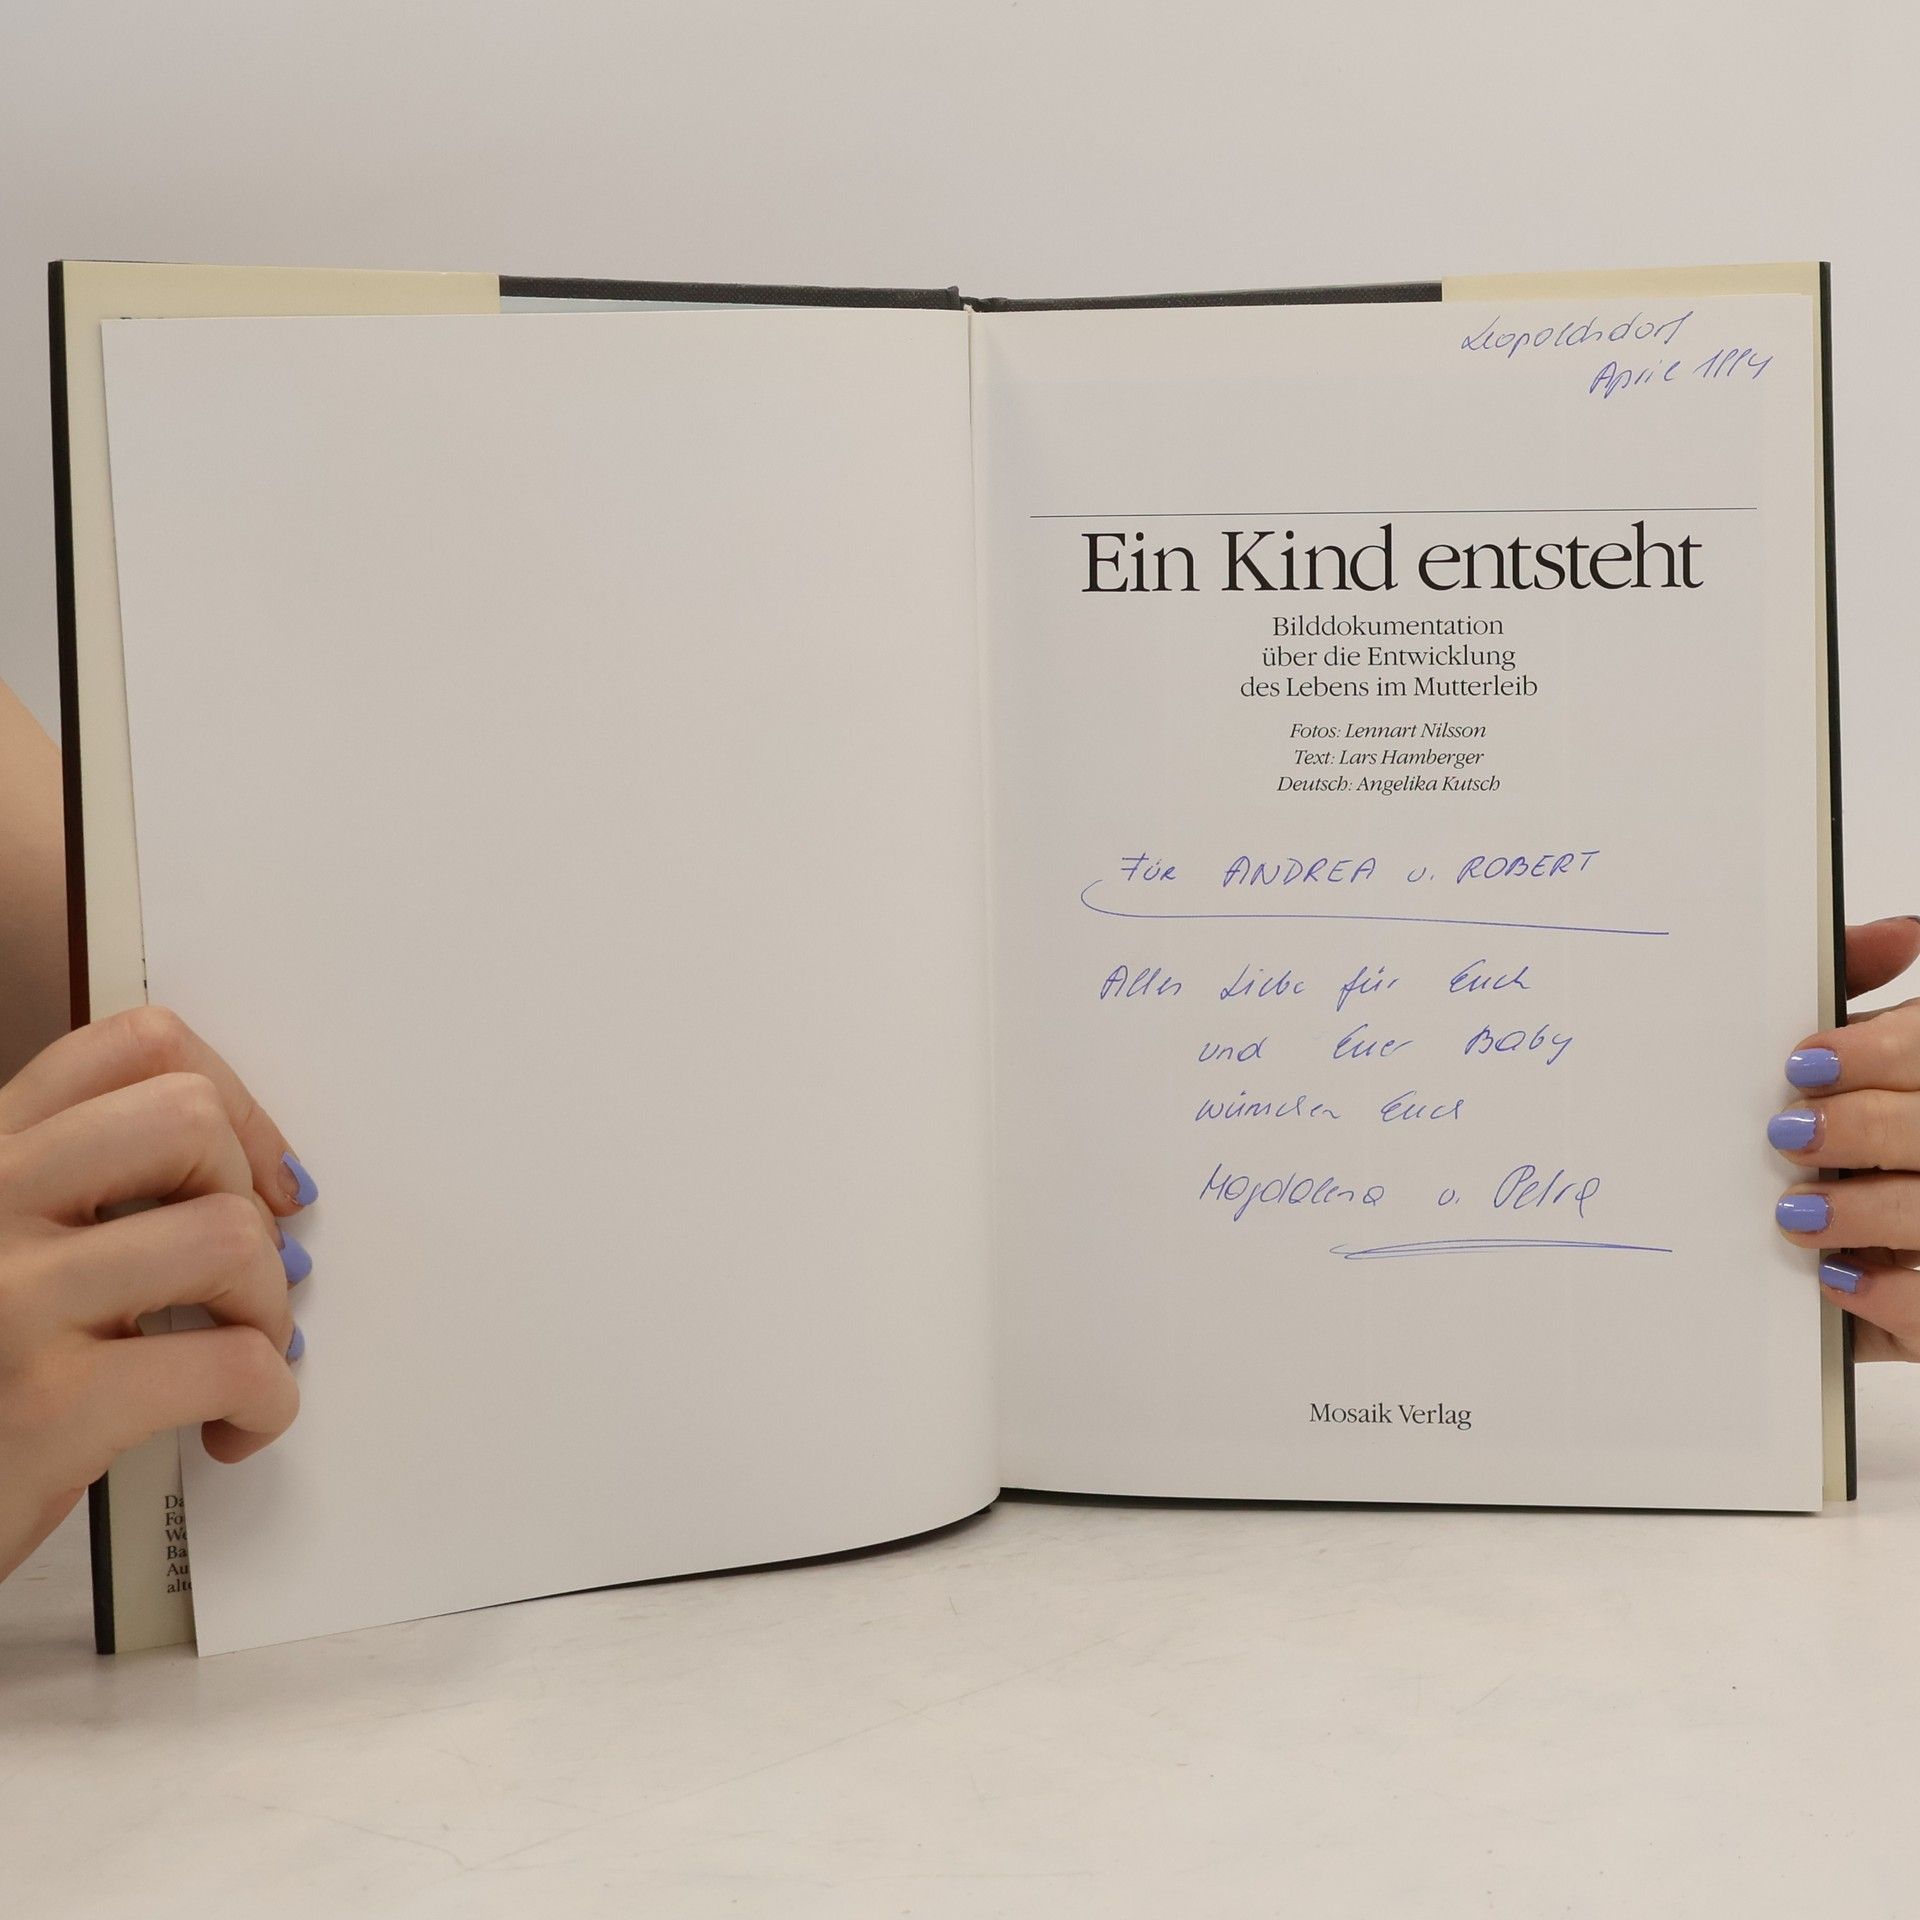 Da
Fo
We
Ba
Au
alte
Leopoldsdorf
April 1994
Ein Kind entsteht
Bilddokumentation
über die Entwicklung
des Lebens im Mutterleib
Fotos: Lennart Nilsson
Text: Lars Hamberger
Deutsch: Angelika Kutsch
FÜR ANDREA u. ROBERT
Alles Liebe für Euch
und Euer Baby
wünschen Euch
Magdalena u. Petra
Mosaik Verlag